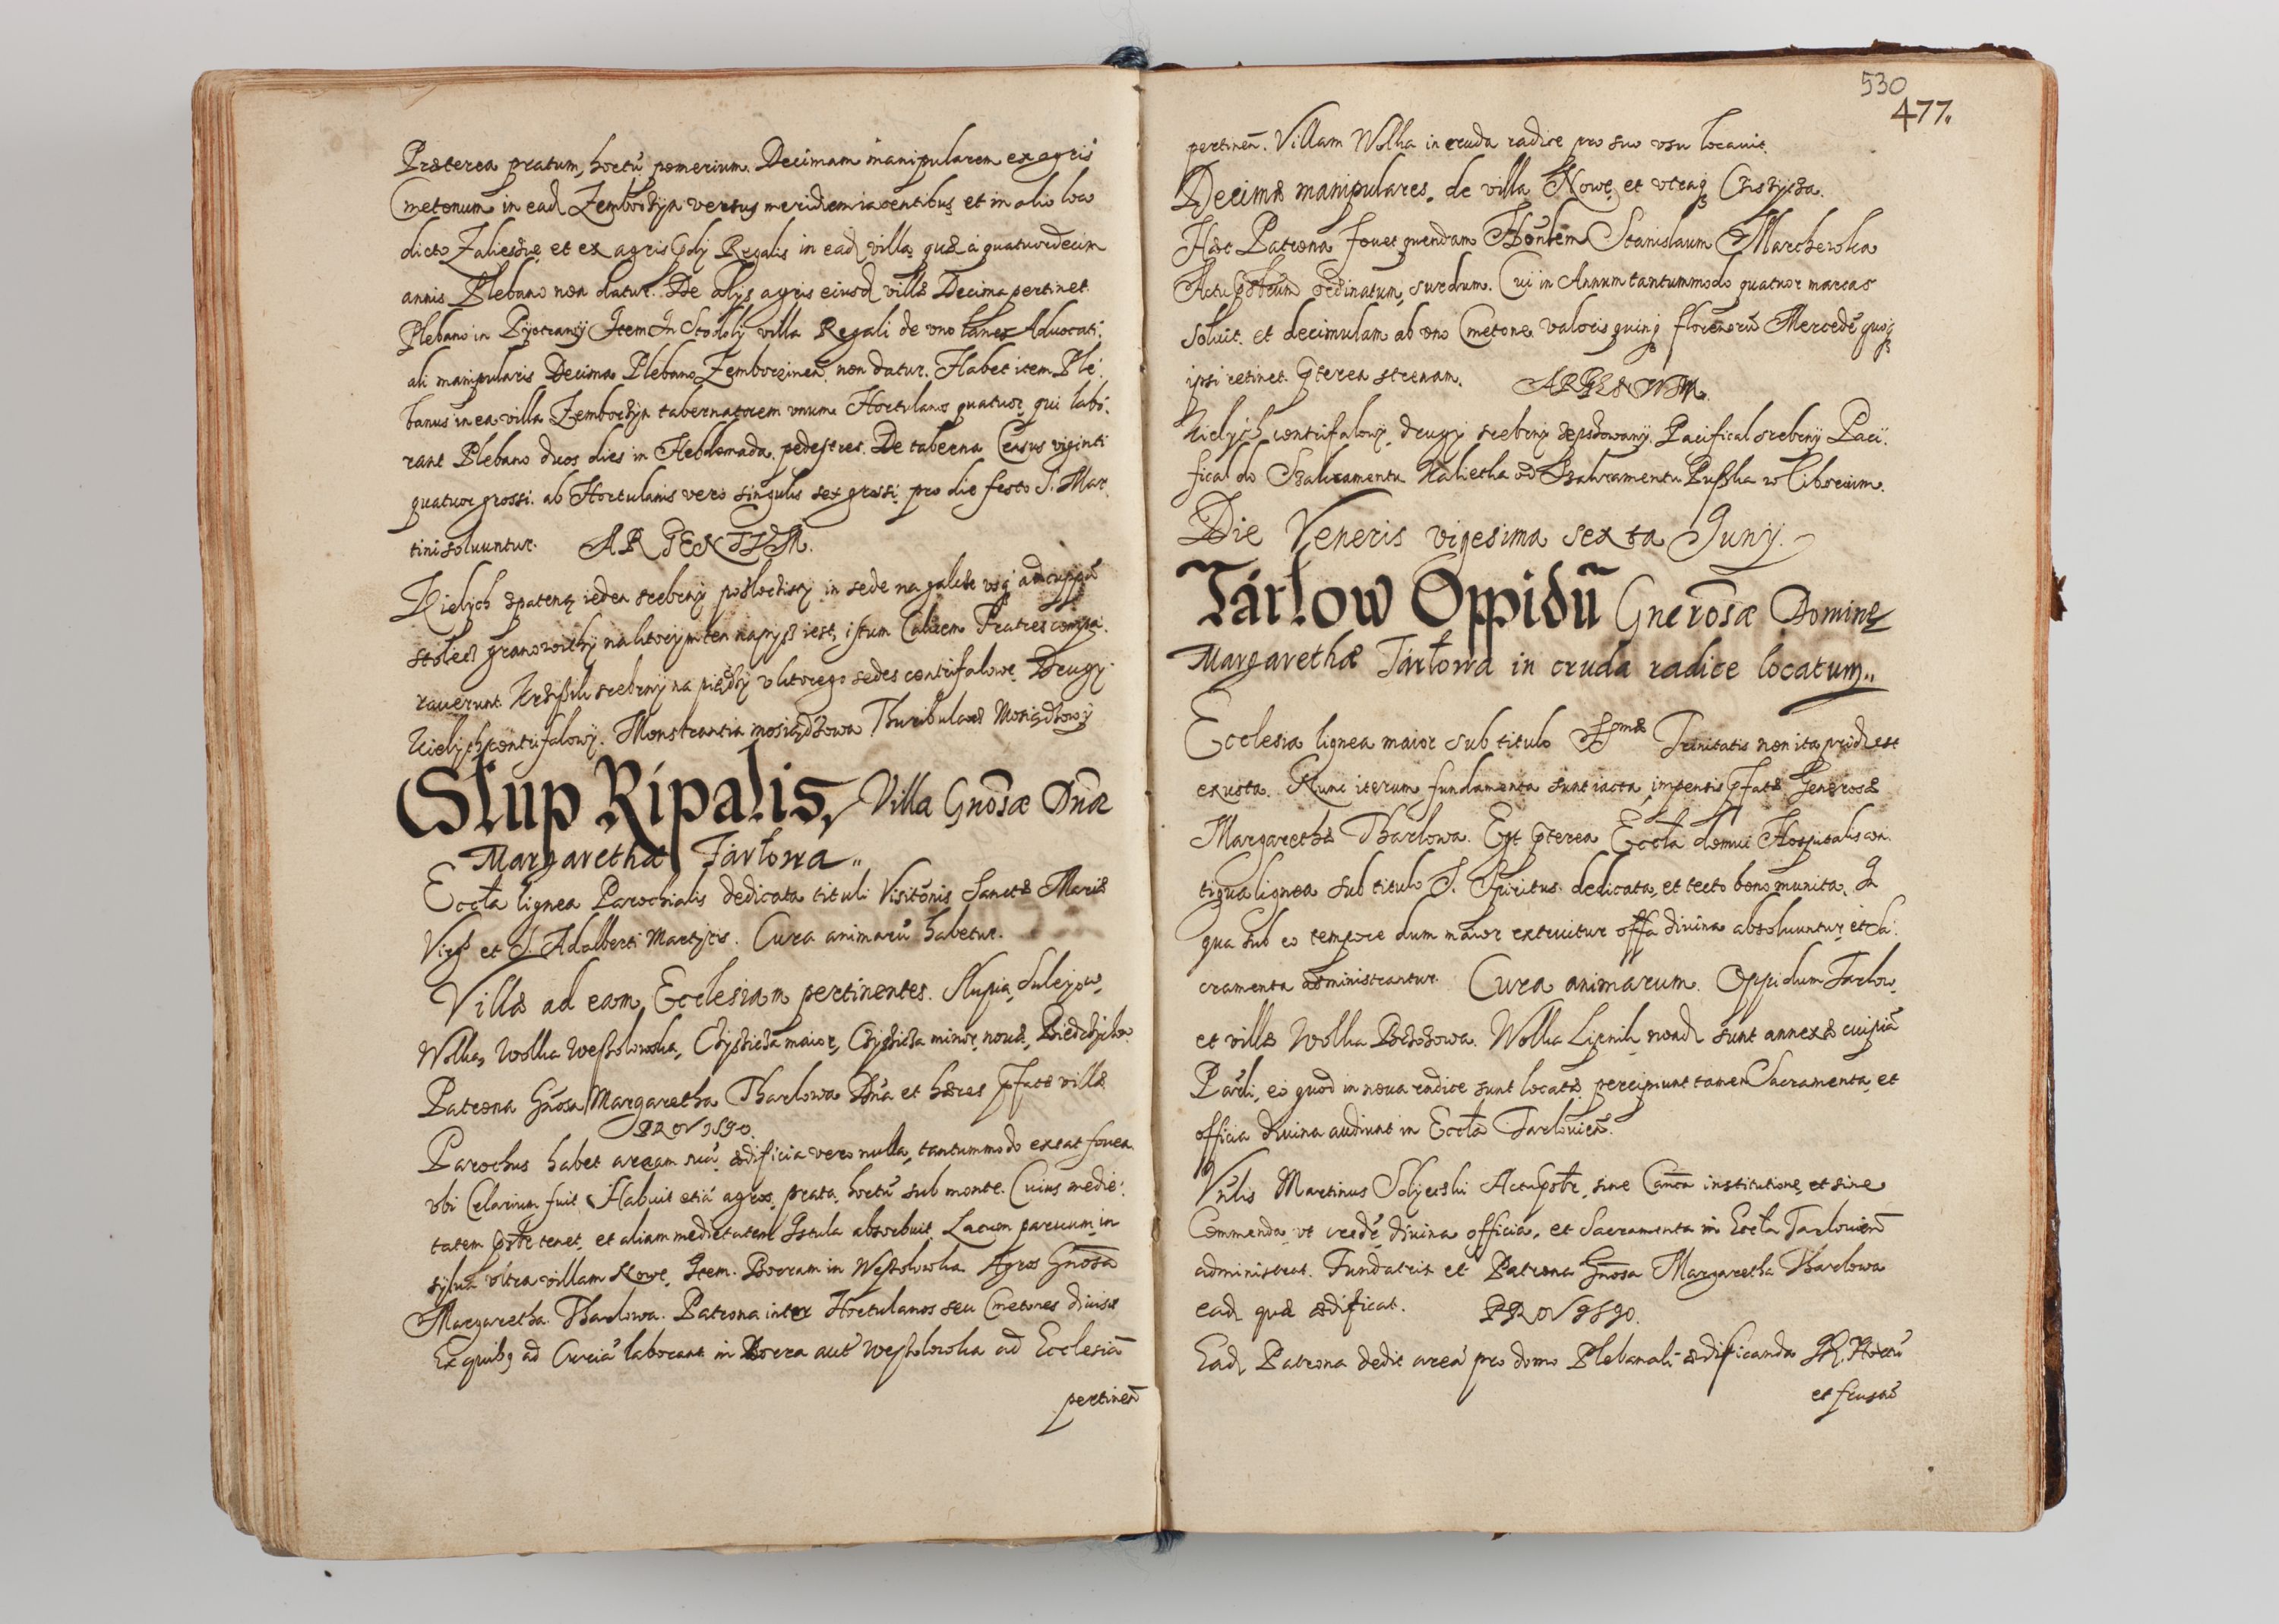 Præterea pratum, hortũ pomerium. Decimam manipularem ex agris
Cmetonum in ead Zemborzÿn versus meridiem iacentibus et in alio loco
dicto Zaliesie, et ex agris Regalis in ead villa, quæ à quatuordecim
annis Plebano non datur. De alijs agris eiusd villæ Decima pertinet
Plebano in Item In Stodolÿ villa Regali de vno laneo Aduocati,
ali manipularis Decima Plebano Zemborzinen. non datur. Habet item Ple:
banus in ea villa Zemborzÿn tabernatorem vnum. Hortulanos quatuor, qui labo:
rant Plebano duos dies in Hebdomada, pedestres. De taberna Census viginti
quatuor grossi. ab Hortulanis vero singulis sex grossi, pro die festo S. Mar:
tini soluuntur. ARGENTVM.
Kielÿch spateną ieden srebrnÿ in sede na galcze
na ktorÿm ten napiß iest, istum Calicem Fratres compa:
rauerunt. srebrnÿ na piądzÿ v ktorego sedes contrifalowe. Drugÿ
Kielÿch contrifalowÿ. Monstrantia mosiądzowa Thuribularz Mosiądzowÿ
Slup Ripalis, Villa Gnosæ Dnæ
Margarethæ Tárłowa..
Eccła lignea Parochialis dedicata tituli Visitonis Sanctæ Mariæ
Virg. et S. Adalberti Martÿris. Cura animarũ habetur.
Villæ ad eam Ecclesiam pertinentes. Slupia, Suleÿow,
Wolka, Wolka Weßolowska, maior, minor, noua,
Patrona Gnosa Margaretha Tharlowa Dna et hæres pfatæ villæ
PROVISIO.
Parochus habet aream suã, ædificia vero nulla, tantummodo extat fouea
vbi Celarium fuit. Habuit etiã agros, prata, hortũ sub monte. Cuius medie:
tatem tenet, et aliam medietatem Istula absorbuit. Lacum paruum in
sylua vltra villam Nowe. Item. Borram in Weßolowka Agros Gnosa
Margaretha Tharlowa. Patrona inter Hortulanos seu Cmetones diuisit
Ex quibus ad Curiã laborant in Borra aut Weßolowka ad Ecclesiã
pertinen
530
477.
pertinen. Villam Wolka in cruda radice pro suo vsu locauit.
Decimæ manipulares, de villa Nowe, et vtraq
Hæc Patrona fouet quendam Honlem Stanislaum Marchewka
Actu ordinatum, surdum. Cui in Annum tantummodo quatuor marcas
soluit. et decimulam ab vno Cmetone valoris quinq florenorũ Mercedẽ quoq
ipsi retinet. pterea strenam. ARGENTVM.
Kielÿch contrifalowÿ, drugÿ srebrnÿ Pacifical srebrnÿ Paci:
fical do Sakramentu Kalietka od Sakramentu Pußka w Ciborium.
Die Veneris vigesima sexta Junÿ.
Tárłow Oppidũ Gnerosæ Dominę
Margarethæ Tárłowa in cruda radice locatum..
Ecclesia lignea maior sub titulo SSmæ Trinitatis non ita prid est
exusta. Nunc iterum fundamenta sunt iacta, impensis pfatæ Generosæ
Margarethæ Tharlowa. Est pterea Eccła domui Hospitalis con:
tigua lignea sub titulo S. Spiritus dedicata, et tecto bono munita. In
qua sub eo tempore dum maior extruitur offa diuina absoluuntur, et Sa:
cramenta administrantur. Cura animarum. Oppidum Tarlow,
et villæ Wolka Wolka Lipnik, nond sunt annexæ cuipiã
eo quod in noua radice sunt locatæ, percipiunt tamen Sacramenta, et
officia diuina audiunt in Eccła Tarlouien.
Martinus sine Canca institutione, et sine
Commenda, vt credr, diuina officia, et Sacramenta in Eccła Tarlouien
administrat. Fundatrix et Patrona Gnosa Margaretha Tharlowa
ead quæ ædificat. PROVISIO.
Ead Patrona dedit areã pro domo Plebanali ædificanda Hortũ
et